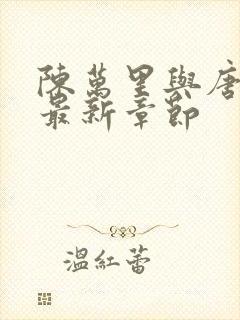 陳萬里與唐
最新章節
溫紅蕾